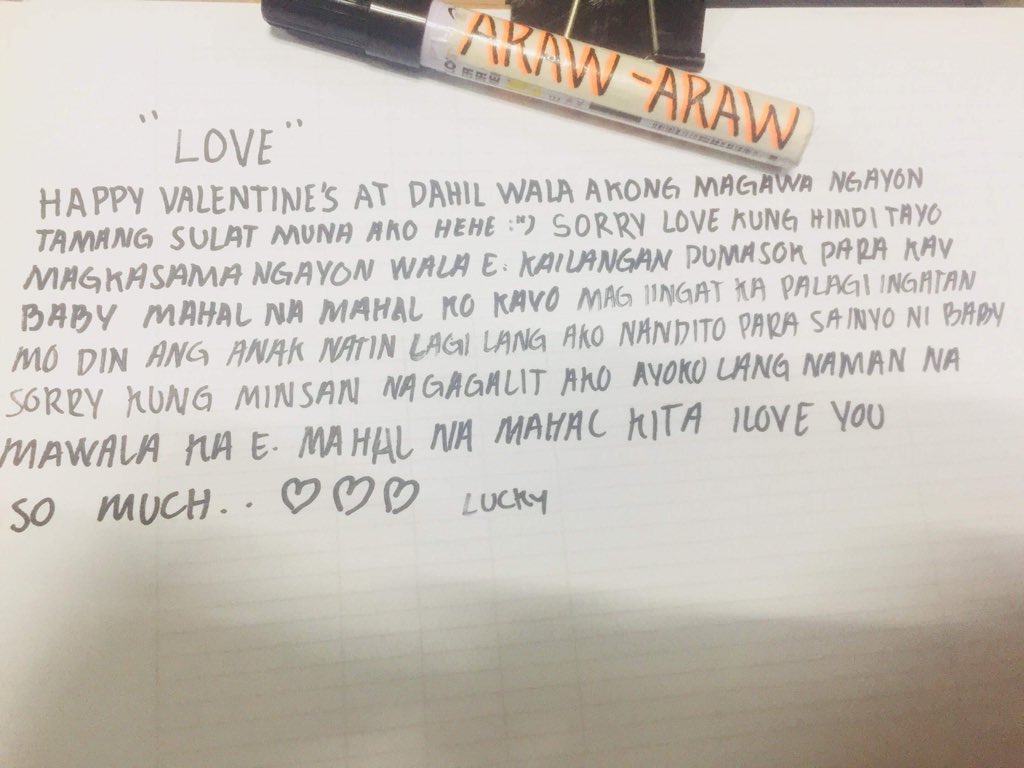 ARAW-ARAW
"LOVE"
HAPPY VALENTINE'S AT DAHIL WALA AKONG MAGAWA NGAYON
TAMANG SULAT MUNA AKO HEHE :") SORRY LOVE KUNG HINDI TAYO
MAGKASAMA NGAYON WALA E. KAILANGAN PUMASOK PARA KAY
BABY MAHAL NA MAHAL KO KAYO MAG IINGAT KA PALAGI INGATAN
MO DIN ANG ANAK NATIN LAGI LANG AKO NANDITO PARA SAINYO NI BABY
SORRY KUNG MINSAN NAGAGALIT AKO AYOKO LANG NAMAN NA
MAWALA KA E. MAHAL NA MAHAL KITA ILOVE YOU
SO MUCH.. ♡♡♡ LUCKY